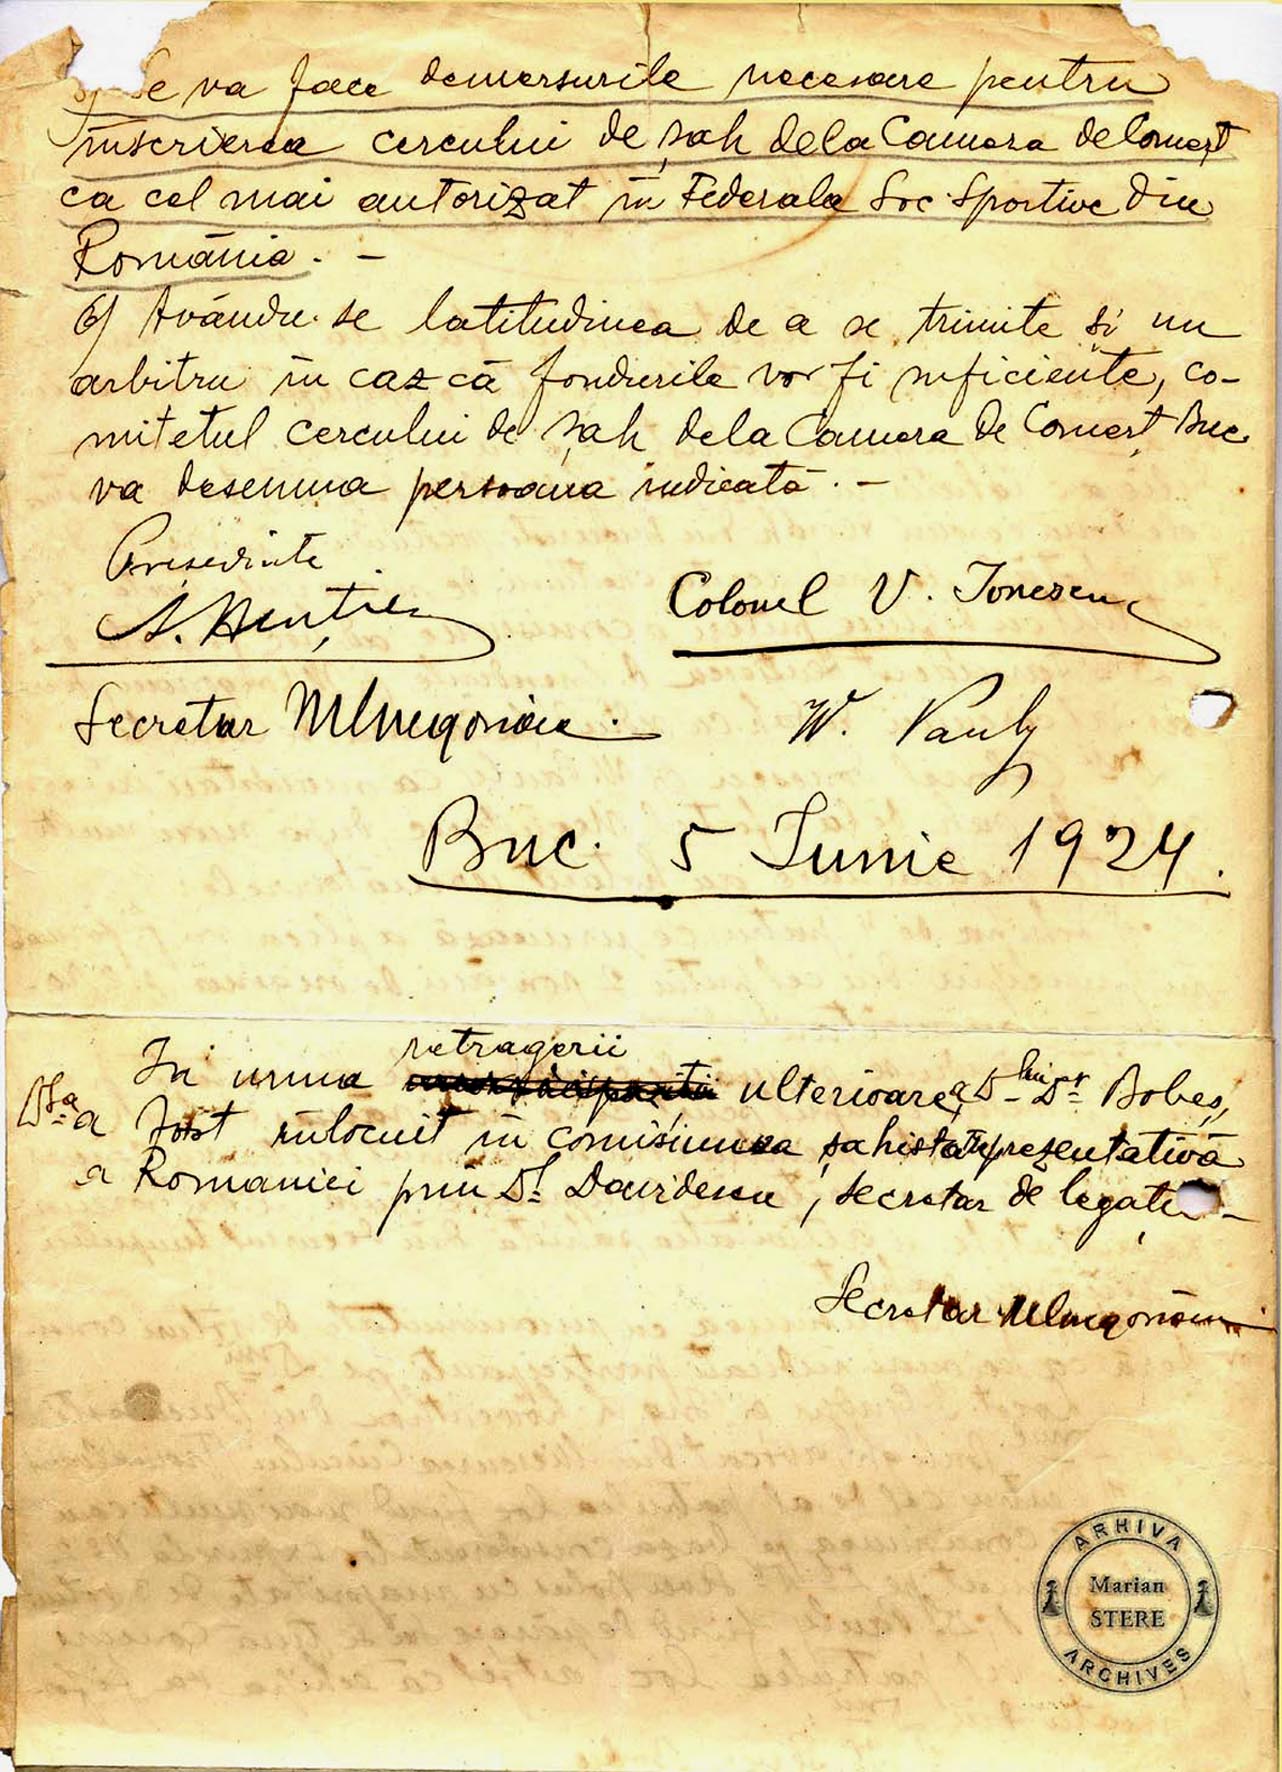 5) Se va face demersurile necesare pentru
înscrierea cercului de șah dela Camera de Comerț
ca cel mai autorizat în Federala Soc. Sportive din
România. —
6) Avându-se latitudinea de a se trimite și un
arbitru în caz că fondurile vor fi suficiente, co-
mitetul cercului de șah dela Camera de Comerț Buc.
va desemna persoana indicată. —
Președinte
A. Hențiescu
Colonel V. Ionescu
Secretar
W. Pauly
Buc. 5 Iunie 1924.
retragerii
In urma ulterioare a D-lui Dr Boboș,
D-sa a fost înlocuit în comisiunea șahistă reprezentativă
a Romaniei prin Dl Davidescu, secretar de legație —
Secretar
ARHIVA
Marian
STERE
ARCHIVES